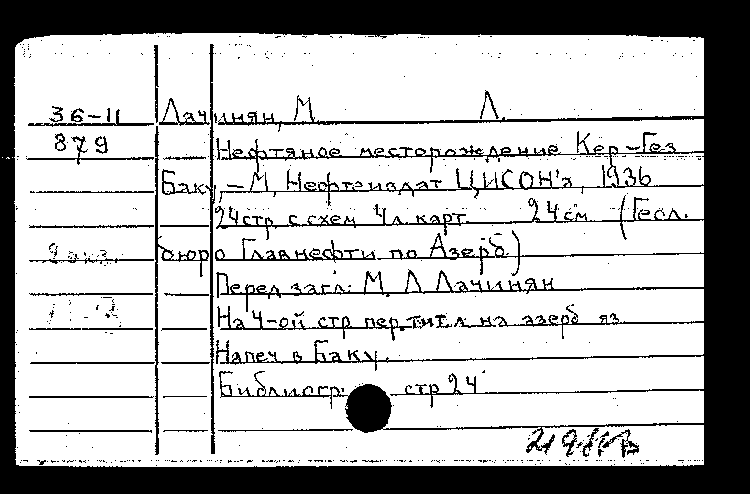 36-11 Лачинян, М. Л.
879 Нефтяное месторождение Кер-Гез
Баку, – М, Нефтеиздат ЦИСОН'а, 1936
24 стр. с схем 4 л. карт. 24 см (Геол.
2 экз. бюро Главнефти по Азерб)
Перед загл: М. Л Лачинян
На 4-ой стр пер. тит. л на азерб яз
Напеч в Баку.
Библиогр: стр 24